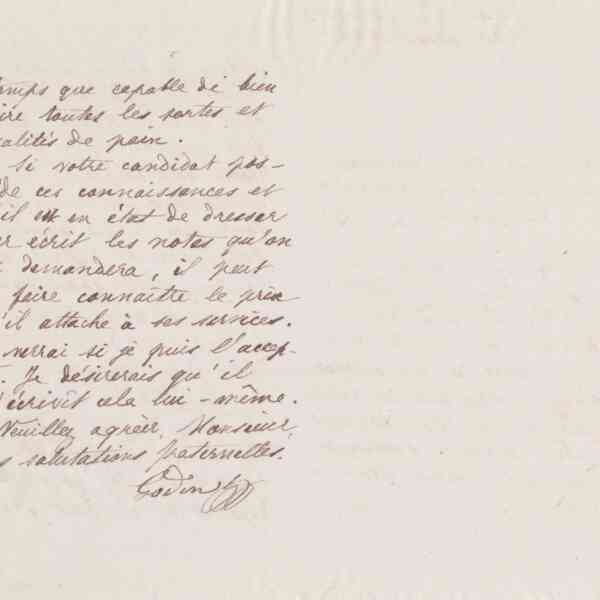 emps que capable de bien
ire toutes les sortes et
ualités de pain.
Si votre candidat pos-
de ces connaissances et
il est en état de dresser
r écrit les notes qu'on
demandera, il peut
faire connaître le prix
'il attache à ses services.
verrai si je puis l'accep-
. Je désirerais qu'il
'écrivit cela lui-même.
Veuillez agréer, Monsieur,
s salutations fraternelles.
Godin